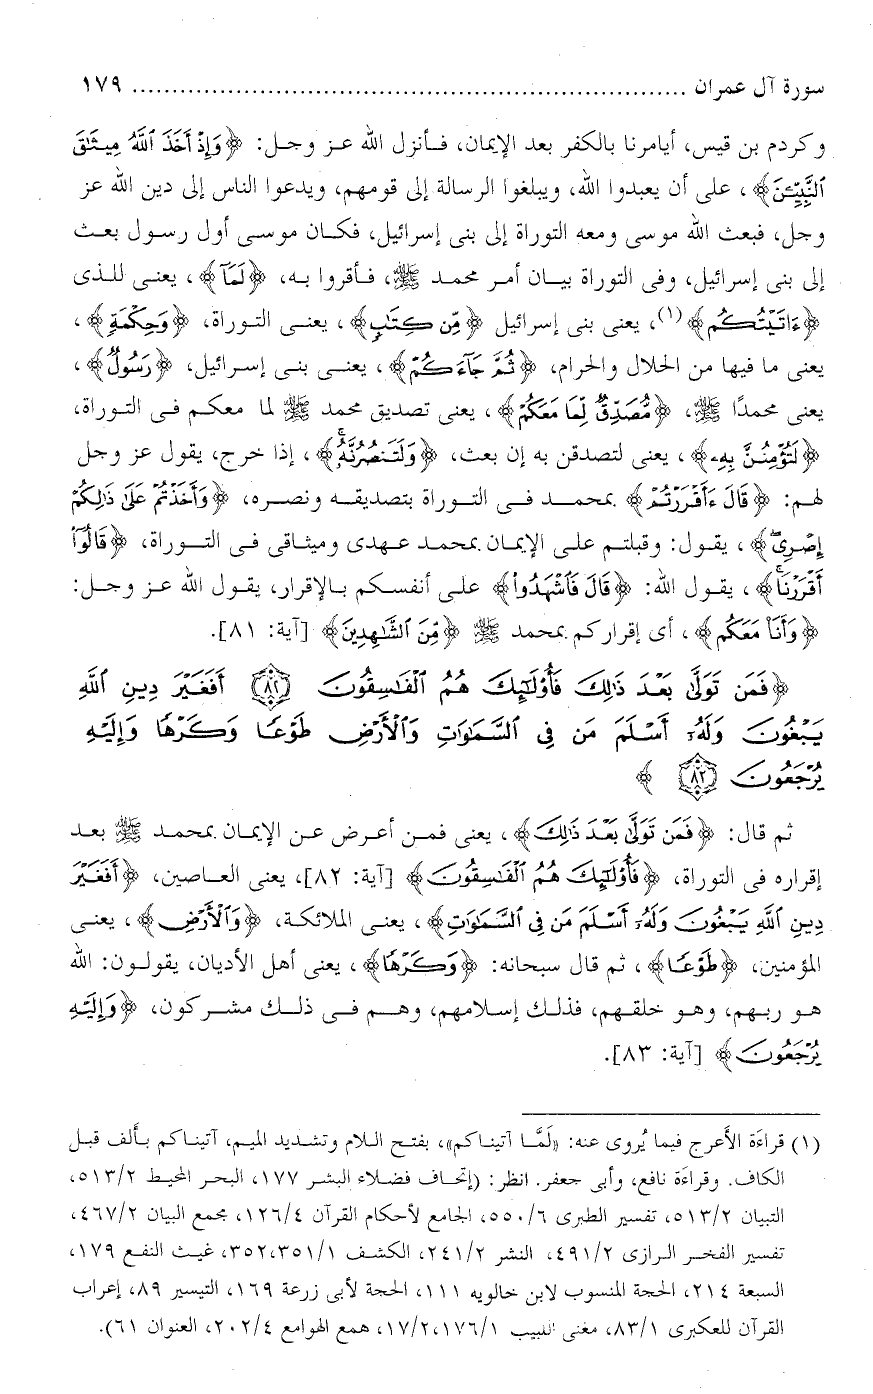 سورة آل عمران ........................................................................ ١٧٩
وكردم بن قيس، أيامرنا بالكفر بعد الإيمان، فأنزل الله عز وجل: ﴿وَإِذْ أَخَذَ ٱللَّهُ مِيثَٰقَ
ٱلنَّبِيِّـۧنَ﴾، على أن يعبدوا الله، ويبلغوا الرسالة إلى قومهم، ويدعوا الناس إلى دين الله عز
وجل، فبعث الله موسى ومعه التوراة إلى بنى إسرائيل، فكان موسى أول رسول بعث
إلى بنى إسرائيل، وفى التوراة بيان أمر محمد ﷺ، فأقروا به، ﴿لَمَآ﴾، يعنى للذى
﴿ءَاتَيْتُكُم﴾(١)، يعنى بنى إسرائيل ﴿مِّن كِتَٰبٍ﴾، يعنى التوراة، ﴿وَحِكْمَةٍ﴾،
يعنى ما فيها من الحلال والحرام، ﴿ثُمَّ جَآءَكُمْ﴾، يعنى بنى إسرائيل، ﴿رَسُولٌ﴾،
يعنى محمدًا ﷺ، ﴿مُّصَدِّقٌ لِّمَا مَعَكُمْ﴾، يعنى تصديق محمد ﷺ لما معكم فى التوراة،
﴿لَتُؤْمِنُنَّ بِهِۦ﴾، يعنى لتصدقن به إن بعث، ﴿وَلَتَنصُرُنَّهُۥۚ﴾، إذا خرج، يقول عز وجل
لهم: ﴿قَالَ ءَأَقْرَرْتُمْ﴾ بمحمد فى التوراة بتصديقه ونصره، ﴿وَأَخَذْتُمْ عَلَىٰ ذَٰلِكُمْ
إِصْرِىۖ﴾، يقول: وقبلتم على الإيمان بمحمد عهدى وميثاقى فى التوراة، ﴿قَالُوٓا۟
أَقْرَرْنَاۚ﴾، يقول الله: ﴿قَالَ فَٱشْهَدُوا۟﴾ على أنفسكم بالإقرار، يقول الله عز وجل:
﴿وَأَنَا۠ مَعَكُم﴾، أى إقراركم بمحمد ﷺ ﴿مِّنَ ٱلشَّٰهِدِينَ﴾ [آية: ٨١].
﴿فَمَن تَوَلَّىٰ بَعْدَ ذَٰلِكَ فَأُو۟لَٰٓئِكَ هُمُ ٱلْفَٰسِقُونَ ٨٢ أَفَغَيْرَ دِينِ ٱللَّهِ
يَبْغُونَ وَلَهُۥٓ أَسْلَمَ مَن فِى ٱلسَّمَٰوَٰتِ وَٱلْأَرْضِ طَوْعًا وَكَرْهًا وَإِلَيْهِ
يُرْجَعُونَ ٨٣﴾
ثم قال: ﴿فَمَن تَوَلَّىٰ بَعْدَ ذَٰلِكَ﴾، يعنى فمن أعرض عن الإيمان بمحمد ﷺ بعد
إقراره فى التوراة، ﴿فَأُو۟لَٰٓئِكَ هُمُ ٱلْفَٰسِقُونَ﴾ [آية: ٨٢]، يعنى العاصين، ﴿أَفَغَيْرَ
دِينِ ٱللَّهِ يَبْغُونَ وَلَهُۥٓ أَسْلَمَ مَن فِى ٱلسَّمَٰوَٰتِ﴾، يعنى الملائكة، ﴿وَٱلْأَرْضِ﴾، يعنى
المؤمنين، ﴿طَوْعًا﴾، ثم قال سبحانه: ﴿وَكَرْهًا﴾، يعنى أهل الأديان، يقولون: الله
هو ربهم، وهو خلقهم، فذلك إسلامهم، وهم فى ذلك مشركون، ﴿وَإِلَيْهِ
يُرْجَعُونَ﴾ [آية: ٨٣].
(١) قراءة الأعرج فيما يُروى عنه: «لَمَّا آتيناكم»، بفتح اللام وتشديد الميم، آتيناكم بألف قبل
الكاف. وقراءة نافع، وأبى جعفر. انظر: (إتحاف فضلاء البشر ١٧٧، البحر المحيط ٥١٣/٢،
التبيان ٥١٣/٢، تفسير الطبرى ٥٥٠/٦، الجامع لأحكام القرآن ١٢٦/٤، مجمع البيان ٤٦٧/٢،
تفسير الفخر الرازى ٤٩١/٢، النشر ٢٤١/٢، الكشف ٣٥٢،٣٥١/١، غيث النفع ١٧٩،
السبعة ٢١٤، الحجة المنسوب لابن خالويه ١١١، الحجة لأبى زرعة ١٦٩، التيسير ٨٩، إعراب
القرآن للعكبرى ٨٣/١، مغنى اللبيب ١٧/٢،١٧٦/١، همع الهوامع ٢٠٢/٤، العنوان ٦١).